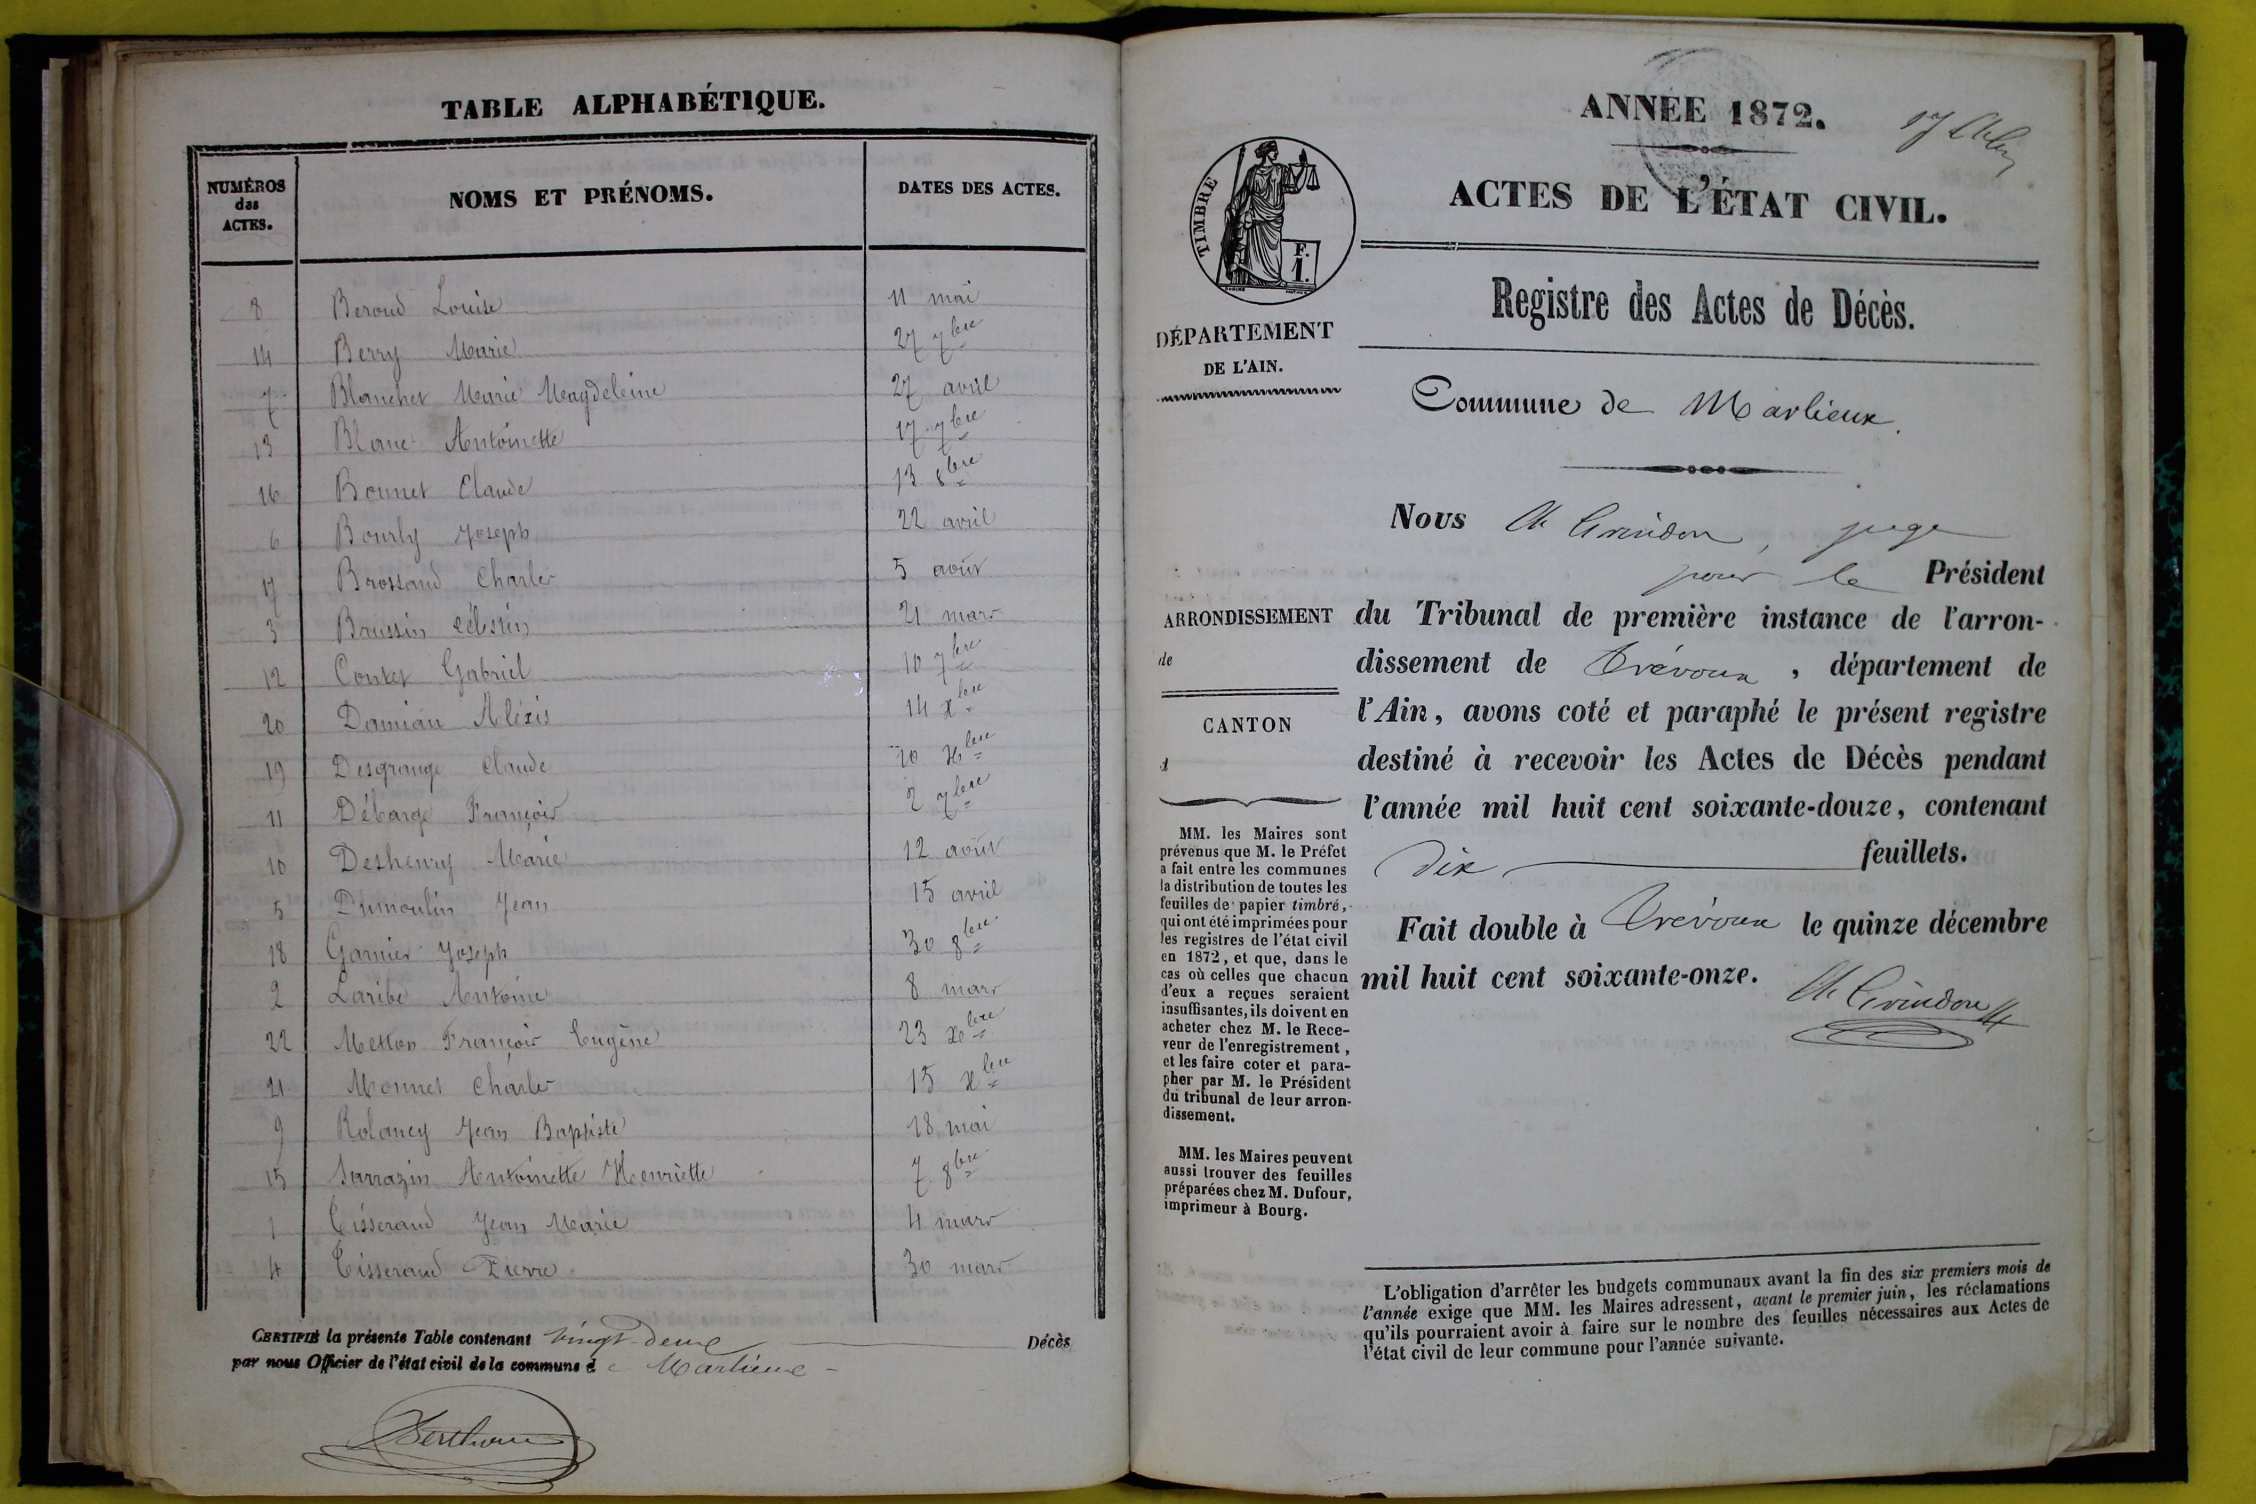 TABLE ALPHABÉTIQUE.
NUMÉROS des ACTES. NOMS ET PRÉNOMS. DATES DES ACTES.
8 Beroud Louise 11 mai
14 Berry Marie 27 7bre
7 Blanchet Marie Magdeleine 27 avril
13 Blanc Antoinette 17 7bre
16 Bonnet Claude 13 8bre
6 Bourly Joseph 22 avril
17 Brossand Charles 5 août
3 Brussin Célestin 21 mars
12 Contet Gabriel 10 7bre
20 Damian Aléxis 14 Xbre
19 Desgrange Claude 10 Xbre
11 Débarge François 2 7bre
10 Deshenry Marie 12 août
5 Dumoulin Jean 15 avril
18 Garnier Joseph 30 8bre
2 Laribe Antoine 8 mars
22 Metton François Eugène 23 Xbre
21 Monnet Charles 15 Xbre
9 Rolancy Jean Baptiste 18 mai
15 Sarrazin Antoinette Henriette 7 8bre
1 Tisserand Jean Marie 4 mars
4 Tisserand Pierre 30 mars
CERTIFIÉ la présente Table contenant vingt-deux Décès
par nous Officier de l'état civil de la commune de Marlieux
ANNÉE 1872.
ACTES DE L'ÉTAT CIVIL.
TIMBRE
F.
1.
Registre des Actes de Décès.
DÉPARTEMENT
DE L'AIN.
Commune de Marlieux.
Nous Ch Grindon, juge
pour le Président
ARRONDISSEMENT
de
CANTON
d
du Tribunal de première instance de l'arron-
dissement de Trévoux, département de
l'Ain, avons coté et paraphé le présent registre
destiné à recevoir les Actes de Décès pendant
l'année mil huit cent soixante-douze, contenant
dix feuillets.
Fait double à Trévoux le quinze décembre
mil huit cent soixante-onze.
Ch Grindon
MM. les Maires sont
prévenus que M. le Préfet
a fait entre les communes
la distribution de toutes les
feuilles de papier timbré,
qui ont été imprimées pour
les registres de l'état civil
en 1872, et que, dans le
cas où celles que chacun
d'eux a reçues seraient
insuffisantes, ils doivent en
acheter chez M. le Rece-
veur de l'enregistrement,
et les faire coter et para-
pher par M. le Président
du tribunal de leur arron-
dissement.
MM. les Maires peuvent
aussi trouver des feuilles
préparées chez M. Dufour,
imprimeur à Bourg.
L'obligation d'arrêter les budgets communaux avant la fin des six premiers mois de
l'année exige que MM. les Maires adressent, avant le premier juin, les réclamations
qu'ils pourraient avoir à faire sur le nombre des feuilles nécessaires aux Actes de
l'état civil de leur commune pour l'année suivante.